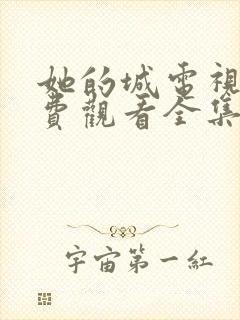 她的城電視
費觀看全集
宇宙第一紅